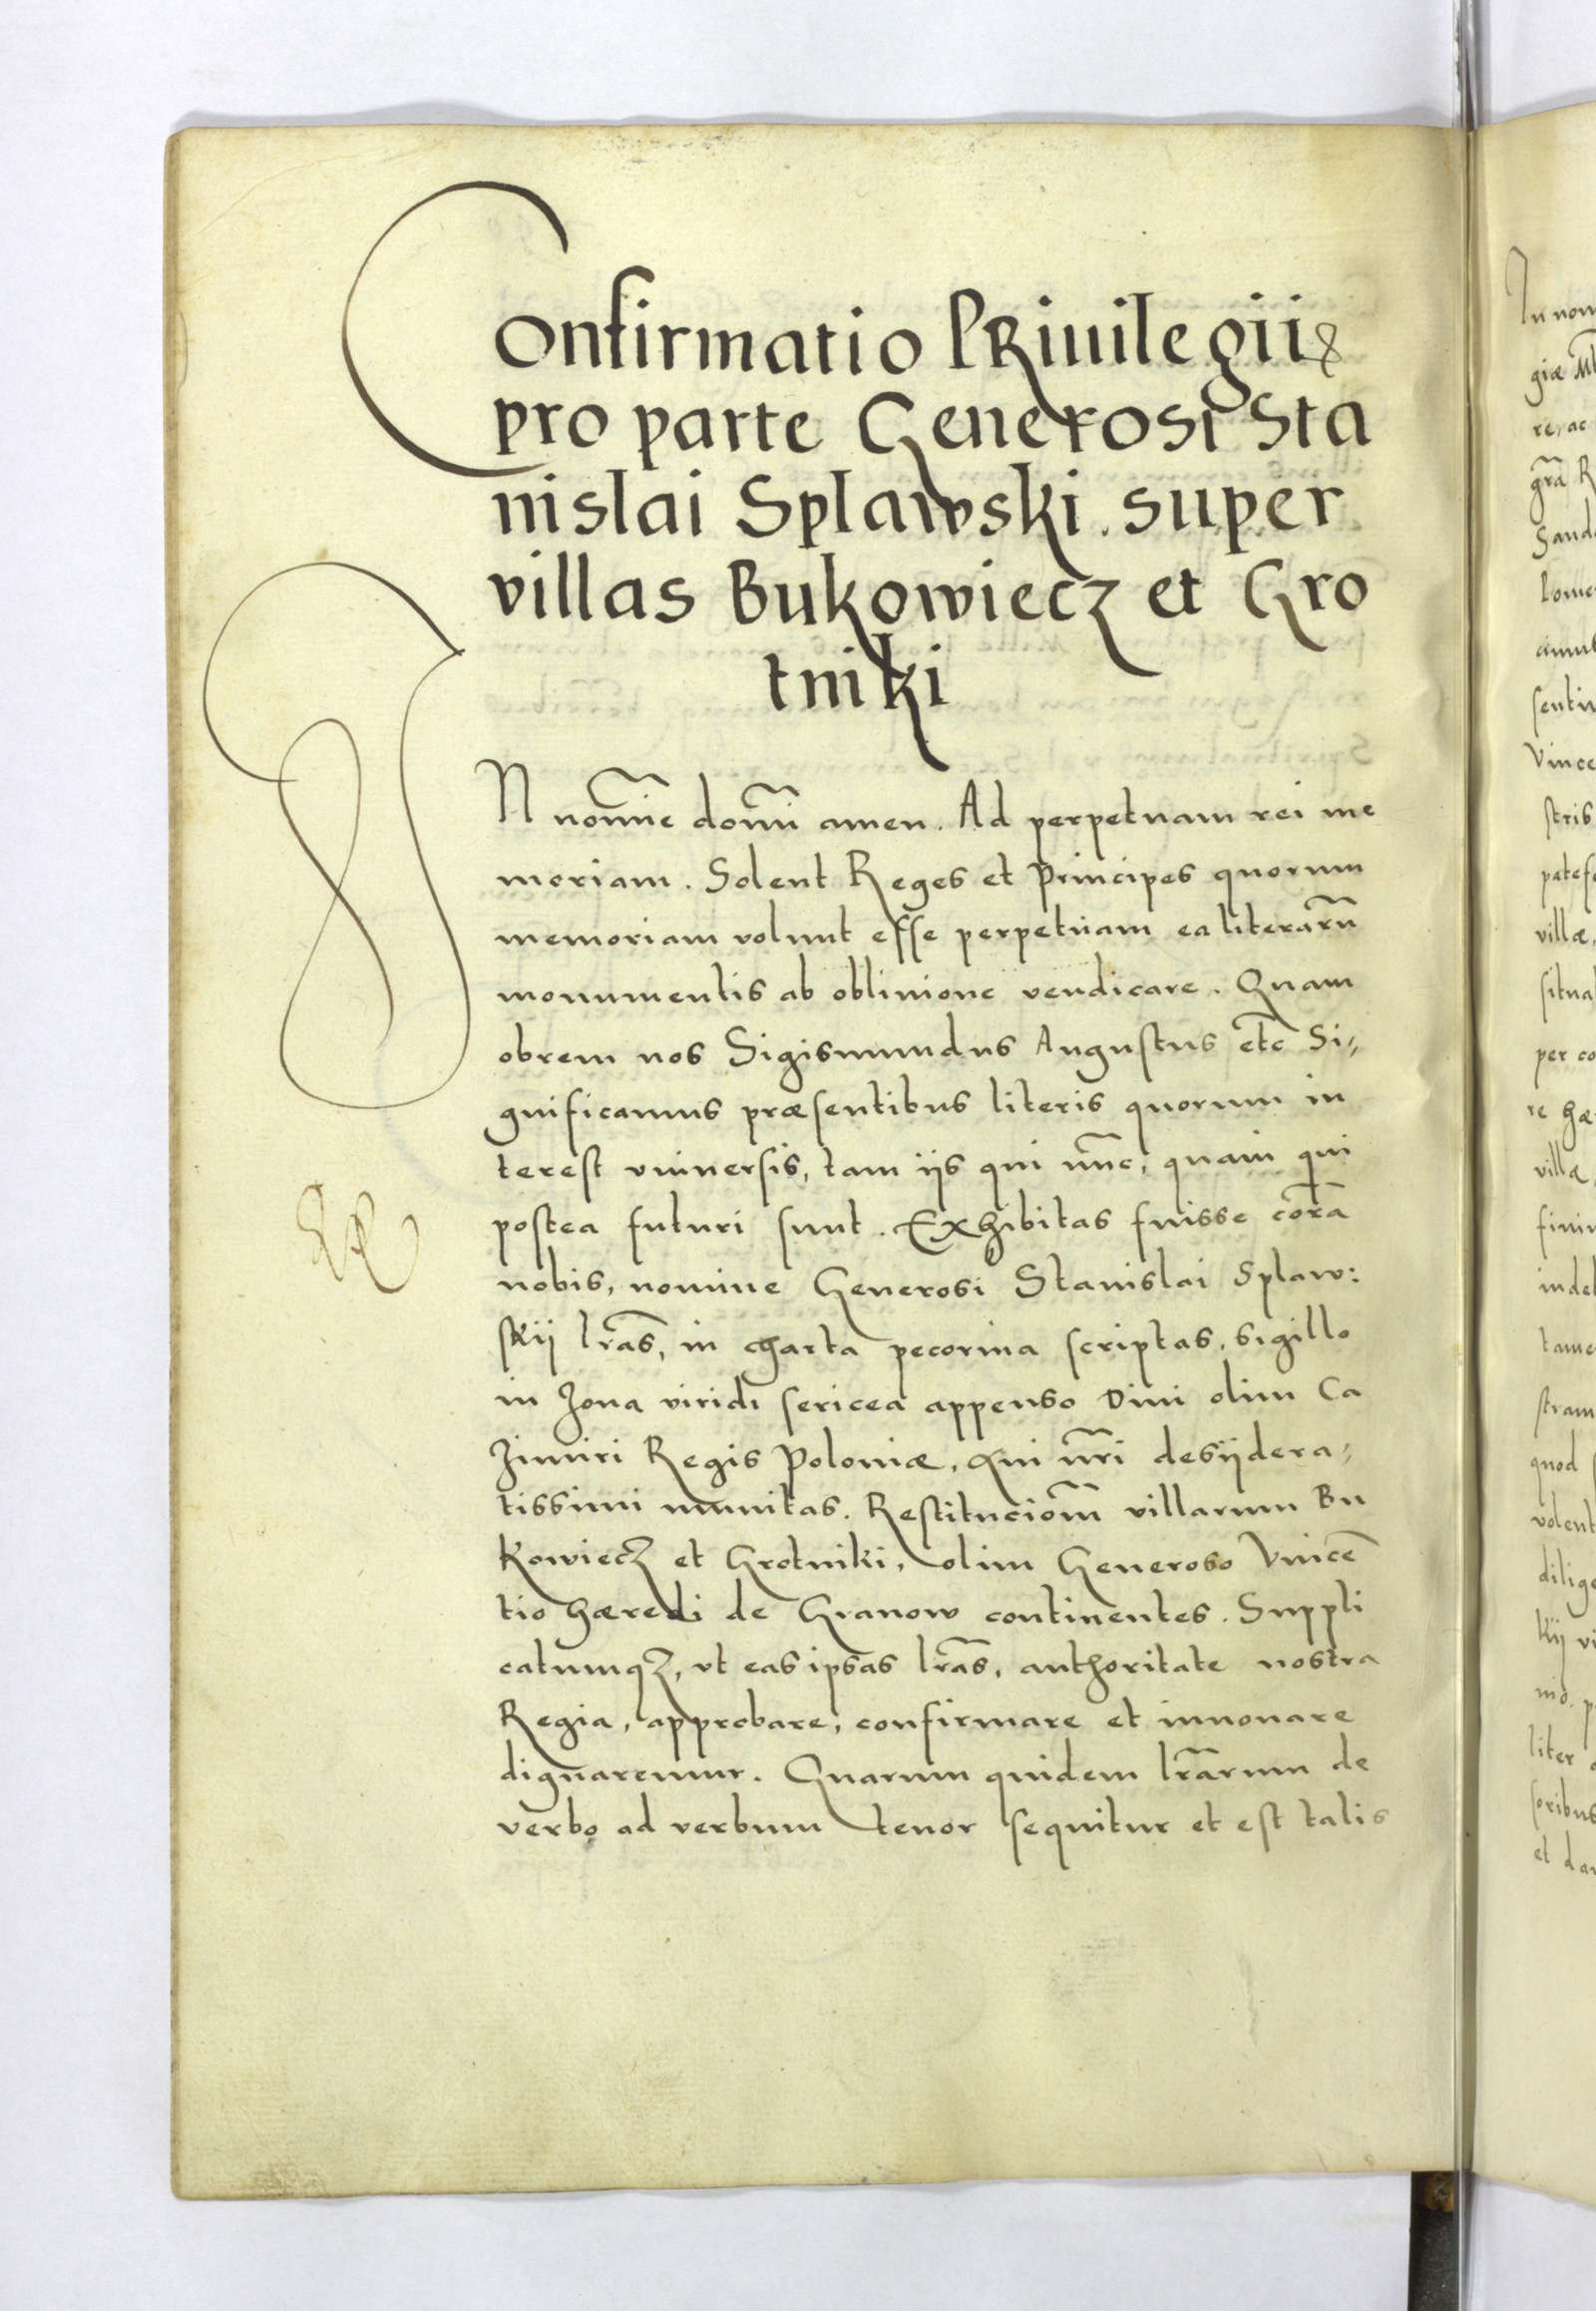 Confirmatio PRiuilegii
pro parte Generosi Sta
nislai Splawski. super
villas Bukowiecz et Gro
tniki
IN nom̃ie domĩ amen. Ad perpetuam rei me
moriam. Solent Reges et Principes quorum
memoriam volunt esse perpetuam ea literarũ
monumentis ab obliuione vendicare. Quam
obrem nos Sigismundus Augustus etc̃ Si,,
gnificamus præsentibus literis quorum in
terest vniuersis, tam ijs qui nũc, quam qui
postea futuri sunt. Exhibitas fuisse corã
nobis, nomine Generosi Stanislai Splaw:
skij lr̃as, in charta pecorina scriptas, sigillo
in zona viridi sericea appenso Diui olim Ca
zimiri Regis Poloniæ, Aui nr̃i desijdera,
tissimi munitas. Restituciom̃ villarum Bu
kowiecz et Grotniki, olim Generoso Vincẽ
tio hæredi de Granow continentes. Suppli
catumqz, vt eas ipsas lr̃as, authoritate nostra
Regia, approbare, confirmare et innouare
dignaremur. Quarum quidem lr̃arum de
verbo ad verbum tenor sequitur et est talis
In nom
giæ
re, ac
gr̃a R
Sand
Pome
sentiu
Vince
stris
patef
villæ,
situa
per co
re hæ
villæ,
finiu
indeb
tame
stram
quod
volent
dilige
kij vi
liter
soribus
et da